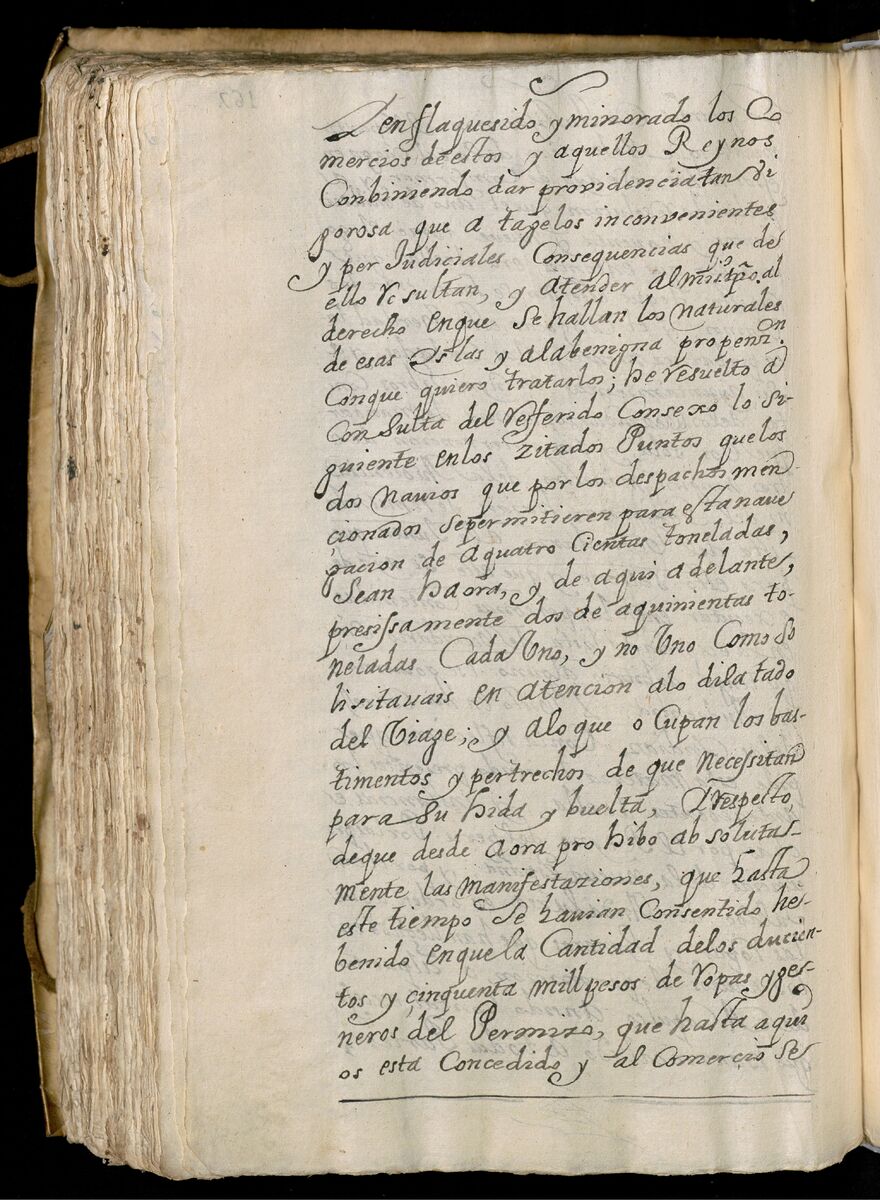 Y enflaquesido y minorado los Co
mercios de estos y aquellos Reynos
Conbiniendo dar providencia tan Vi
gorosa que atage los inconvenientes
y perJudiciales Consequencias que de
ello resultan, y atender al mismo. al
derecho enque se hallan los naturales
de esas Yslas y alabenigna propenzn.
Conque quiero tratarlos; he resuelto a
Consulta del refferido Consexo lo si-
guiente enlos zitados Puntos quelos
dos navios que por los despachos men
çionados sepermitieren para esta nave
gacion de aquatro Cientas toneladas,
Sean haora, y de aqui adelante,
presissamente dos de aquinientas to-
neladas Cada Uno, y no Uno Como so
lisitavais en atencion alo dilatado
del Viage; y aloque oCupan los bas-
timentos y pertrechos de que necessitan
para su hida y buelta, Yrespecto,
deque desde aora prohibo absoluta-
mente las manifestaziones, que hasta
este tiempo se havian Consentido he-
benido enque la Cantidad delos ducien-
tos y çinquenta mill pesos de ropas y ge-
neros del Permizo, que hasta aqui
os esta Concedido y al Comercio se